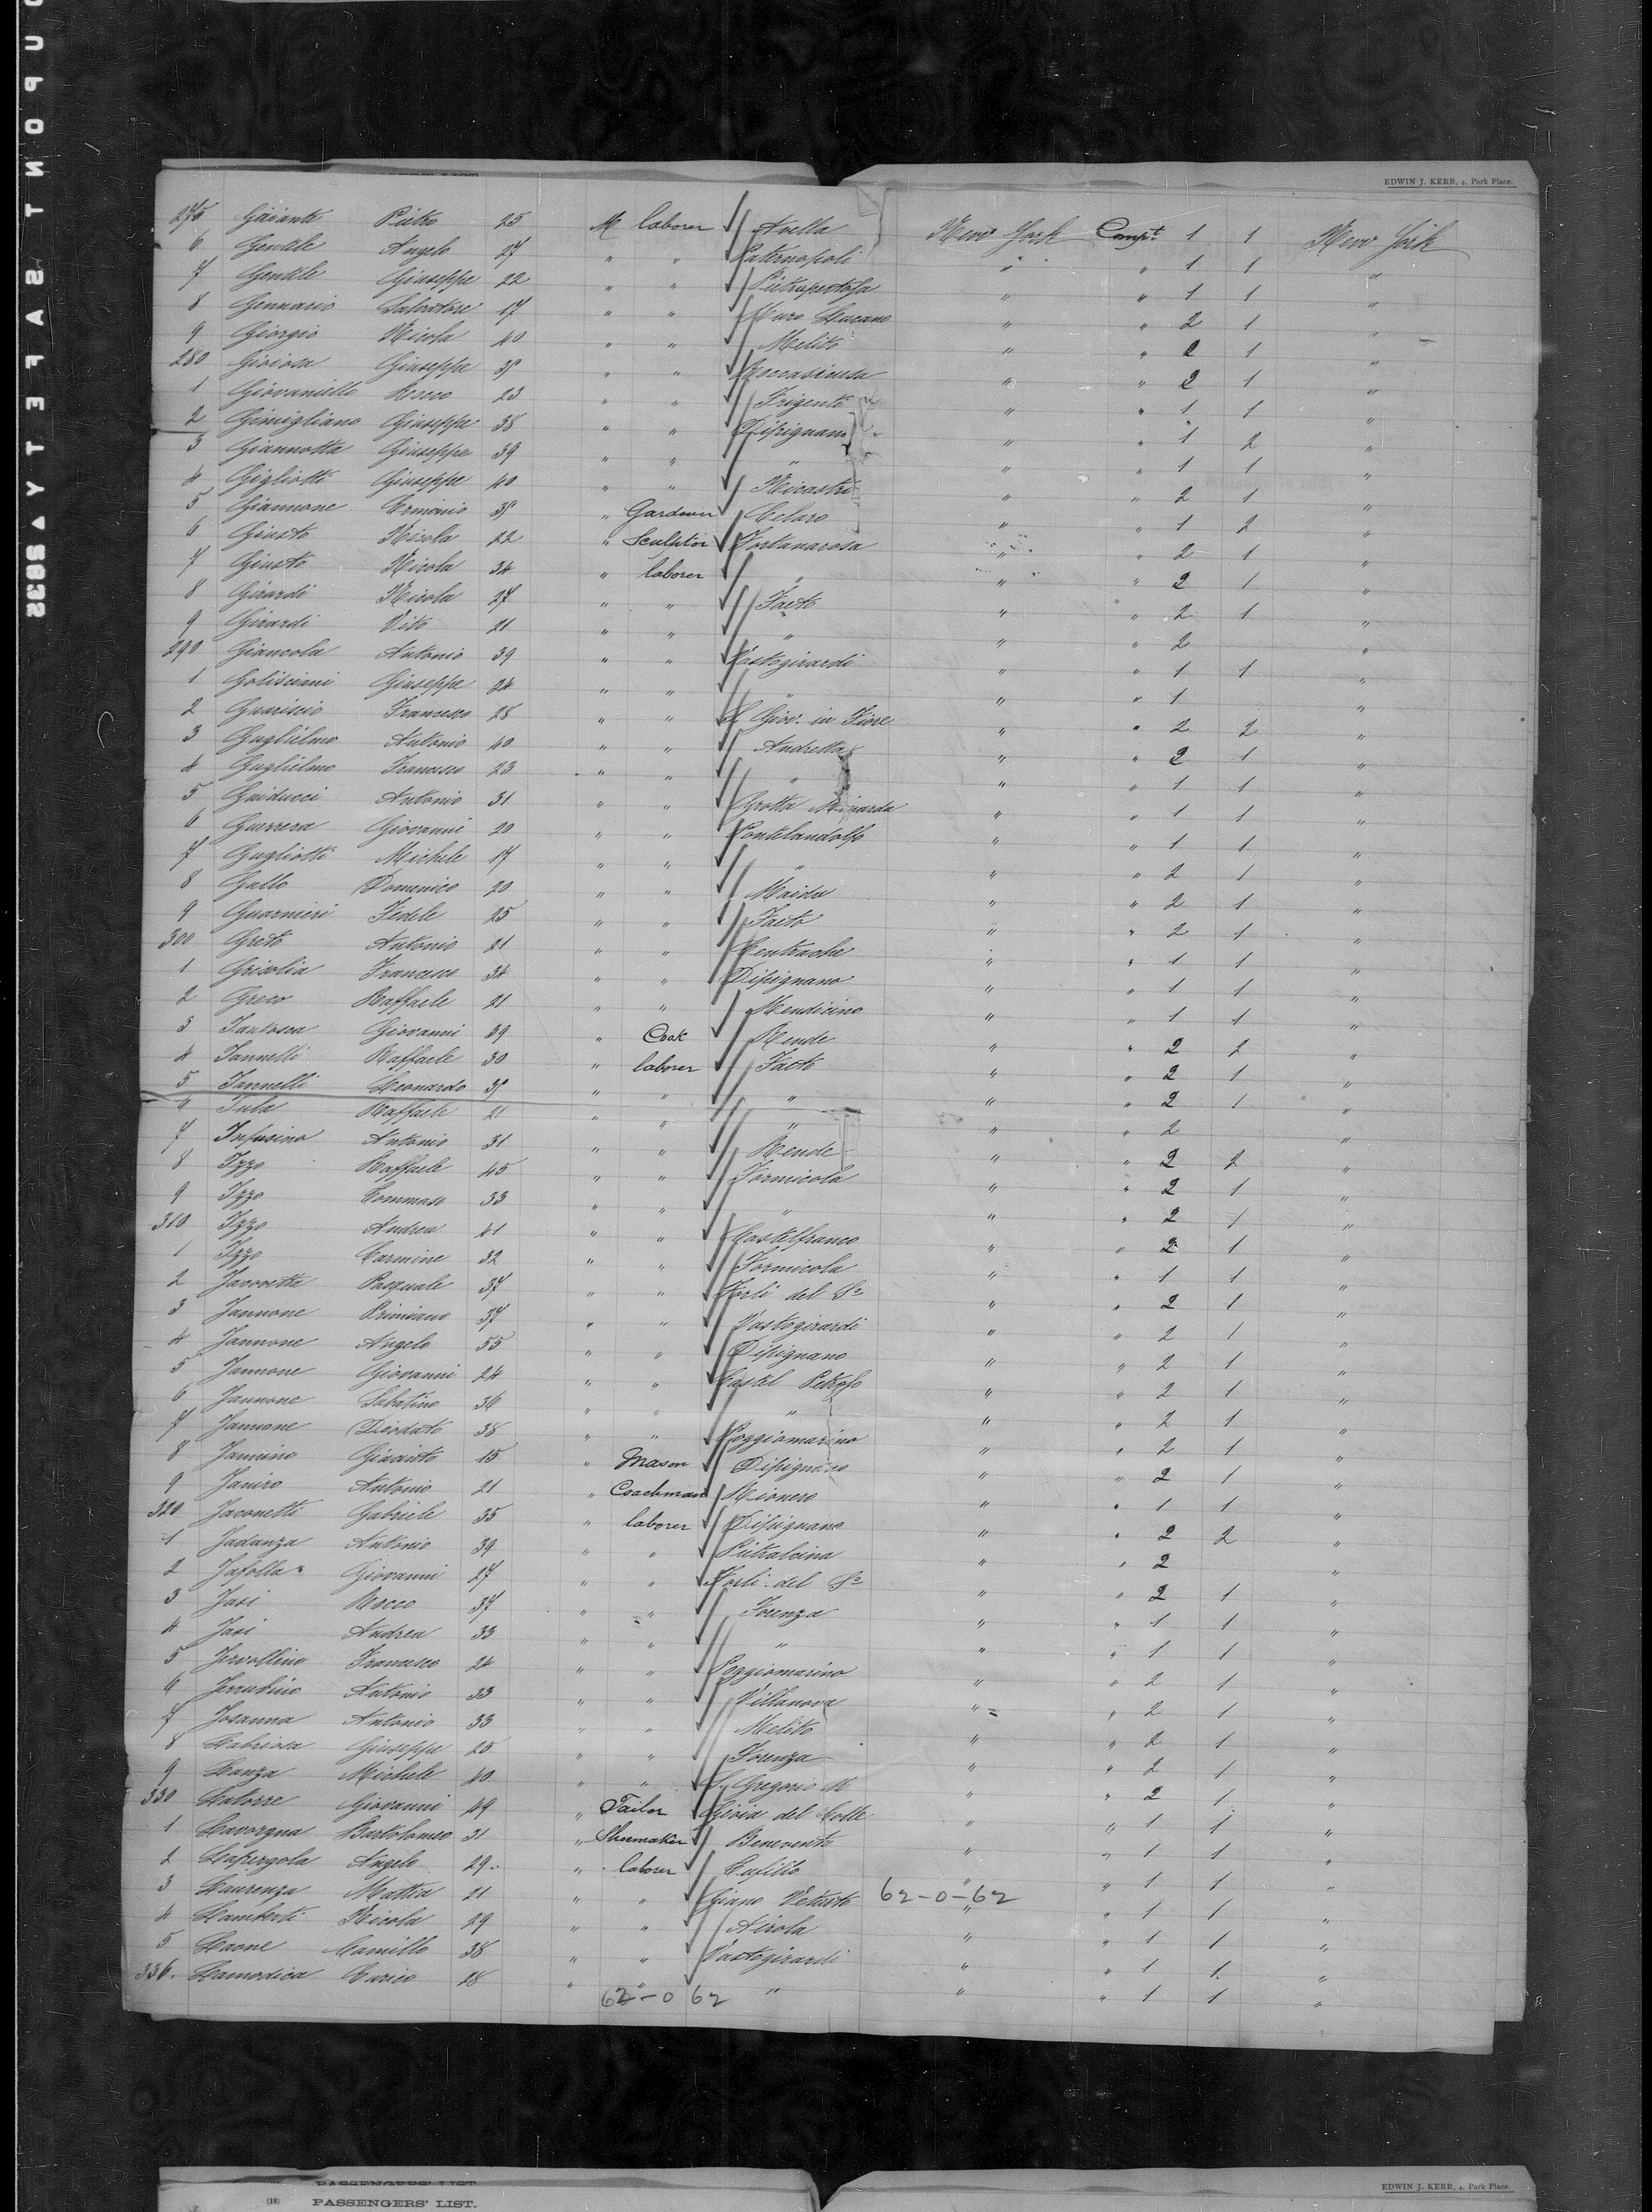 EDWIN J. KERR, 4, Park Place.
275 Pietro 25 M laborer Avella New York Compt. 1 1 New York
6 Gentile Angelo 27 " " Paternopoli " " 1 1 "
7 Gentile Giuseppe 22 " " " " 1 1 "
8 Gennario Salvatore 17 " " Muro Lucano " " 2 1 "
9 Giorgio Nicola 40 " " Melito " " 2 1 "
280 Gioiosa Giuseppe " " " " 2 1 "
1 Giovaniello Rocco 23 " " Frigenti " " 1 1 "
2 Gimigliano Giuseppe 38 " " Dipignano " " 1 2 "
3 Giannotta Giuseppe 39 " " " " " 1 1 "
4 Gigliotti Giuseppe 40 " " Nicastro " " 2 1 "
5 Giannone " Gardener Celaro " " 1 2 "
6 Giusto Nicola 22 " Sculptor Fontanarosa " " 2 1 "
7 Giusto Nicola 34 " laborer " " " 2 1 "
8 Girardi Nicola 27 " " Faeto " " 2 1 "
9 Girardi Vito 21 " " " " " 2 "
290 Giancola Antonio 39 " " Vastogirardi " " 1 1 "
1 Golisciani Giuseppe 24 " " " " " 1 "
2 Guariscio Francesco 28 " " S. Giov. in Fiore " " 2 2 "
3 Guglielmo Antonio 40 " " Andretta " " 2 1 "
4 Guglielmo Francesco 23 " " " " " 1 1 "
5 Guiducci Antonio 31 " " Grotta Minarda " " 1 1 "
6 Guerrera Giovanni 20 " " Pontelandolfo " " 1 1 "
7 Gugliotti Michele 17 " " " " " 2 1 "
8 Gallo Domenico 20 " " Maida " " 2 1 "
9 Guarnieri Fedele 25 " " Faeto " " 2 1 "
300 Greto Antonio 21 " " Centrache " " 1 1 "
1 Grisolia Francesco 34 " " Dipignano " " 1 1 "
2 Greco Raffaele 21 " " Mendicino " " 1 1 "
3 Iantosca Giovanni 39 " Cook Rende " " 2 2 "
4 Iannelli Raffaele 30 " laborer Faeto " " 2 1 "
5 Iannelli Leonardo " " " " " 2 1 "
6 Iula Raffaele 21 " " " " " 2 "
7 Infusino Antonio 31 " " Rende " " 2 2 "
8 Izzo Raffaele 45 " " Formicola " " 2 1 "
9 Izzo Tommaso 33 " " " " " 2 1 "
310 Izzo Andrea 41 " " Castelfranco " " 2 1 "
1 Izzo Carmine 32 " " Formicola " " 1 1 "
2 Pasquale 37 " " Forli del So " " 2 1 "
3 Jannone Primiano 37 " " Vastogirardi " " 2 1 "
4 Jannone Angelo 55 " " Dipignano " " 2 1 "
5 Jannone Giovanni 24 " " Castel Petroso " " 2 1 "
6 Jannone Sabatino 36 " " " " " 2 1 "
7 Jannone Diodato 38 " " Poggiomarino " " 2 1 "
8 Jannino Giacinto 15 " Mason Dipignano " " 2 1 "
9 Janiro Antonio 21 " Coachman Rionero " " 1 1 "
320 Jaconetti Gabriele 35 " laborer Dipignano " " 2 2 "
1 Jadanza Antonio 39 " " Pietralcina " " 2 "
2 Jafolla Giovanni 27 " " Forli del So " " 2 1 "
3 Jasi Rocco 37 " " Forenza " " 1 1 "
4 Jasi Andrea 33 " " " " " 1 1 "
5 Jervollino Francesco 24 " " Poggiomarino " " 2 1 "
6 Antonio 33 " " Villanova " " 2 1 "
7 Josanna Antonio 33 " " Melito " " 2 1 "
8 Labriosa Giuseppe 25 " " Forenza " " 2 1 "
9 Lanza Michele 40 " " S. Gregorio M " " 2 1 "
330 Latorre Giovanni 49 " Tailor Gioia del Colle " " 1 1 "
1 Lavorgna Bartolomeo 31 " Shoemaker Benevento " " 1 1 "
2 Lapergola Angelo 29 " laborer " " 1 1 "
3 Laurenza Mattia 21 " " Giano Vetusto 62-0-62 " " 1 1 "
4 Lamberti Nicola 29 " " Airola " " 1 1 "
5 Leone Camillo 38 " " Vastogirardi " " 1 1 "
336. Lamodica Enrico 28 " " " " " 1 1 "
62-0 62
PASSENGERS' LIST
(18) PASSENGERS' LIST.
EDWIN J. KERR, 4, Park Place.
DUPONT SAFETY 2882